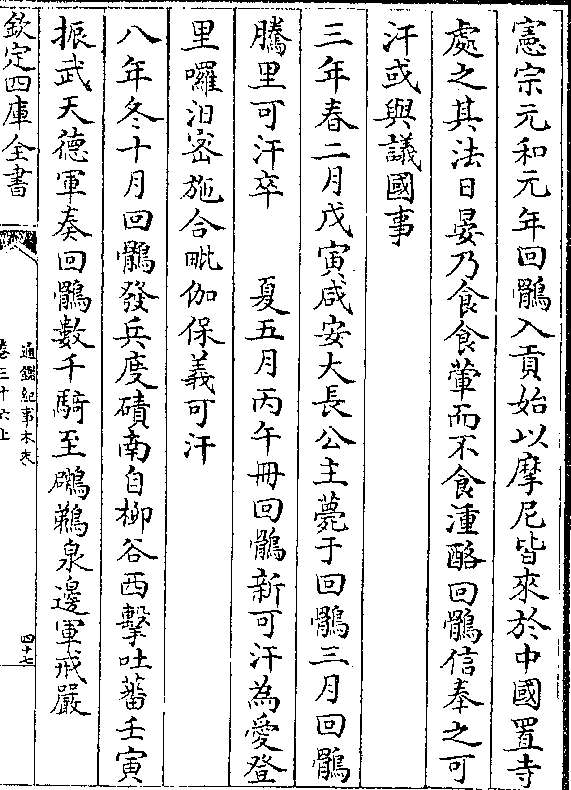 憲宗元和元年回鶻入貢始以摩尼皆來於中國置寺
處之其法日晏乃食食葷而不食湩酪回鶻信奉之可
汗或與議國事
三年春二月戊寅咸安大長公主薨于回鶻三月回鶻
騰里可汗卒　　夏五月丙午冊回鶻新可汗為愛登
里囉汨宻施合毗伽保義可汗
八年冬十月回鶻發兵度磧南自柳谷西擊吐蕃壬寅
振武天德軍奏回鶻數千騎至鸊鵜泉邊軍戒嚴
欽定四庫全書
通鑑紀事本末
卷三十六上
四十七